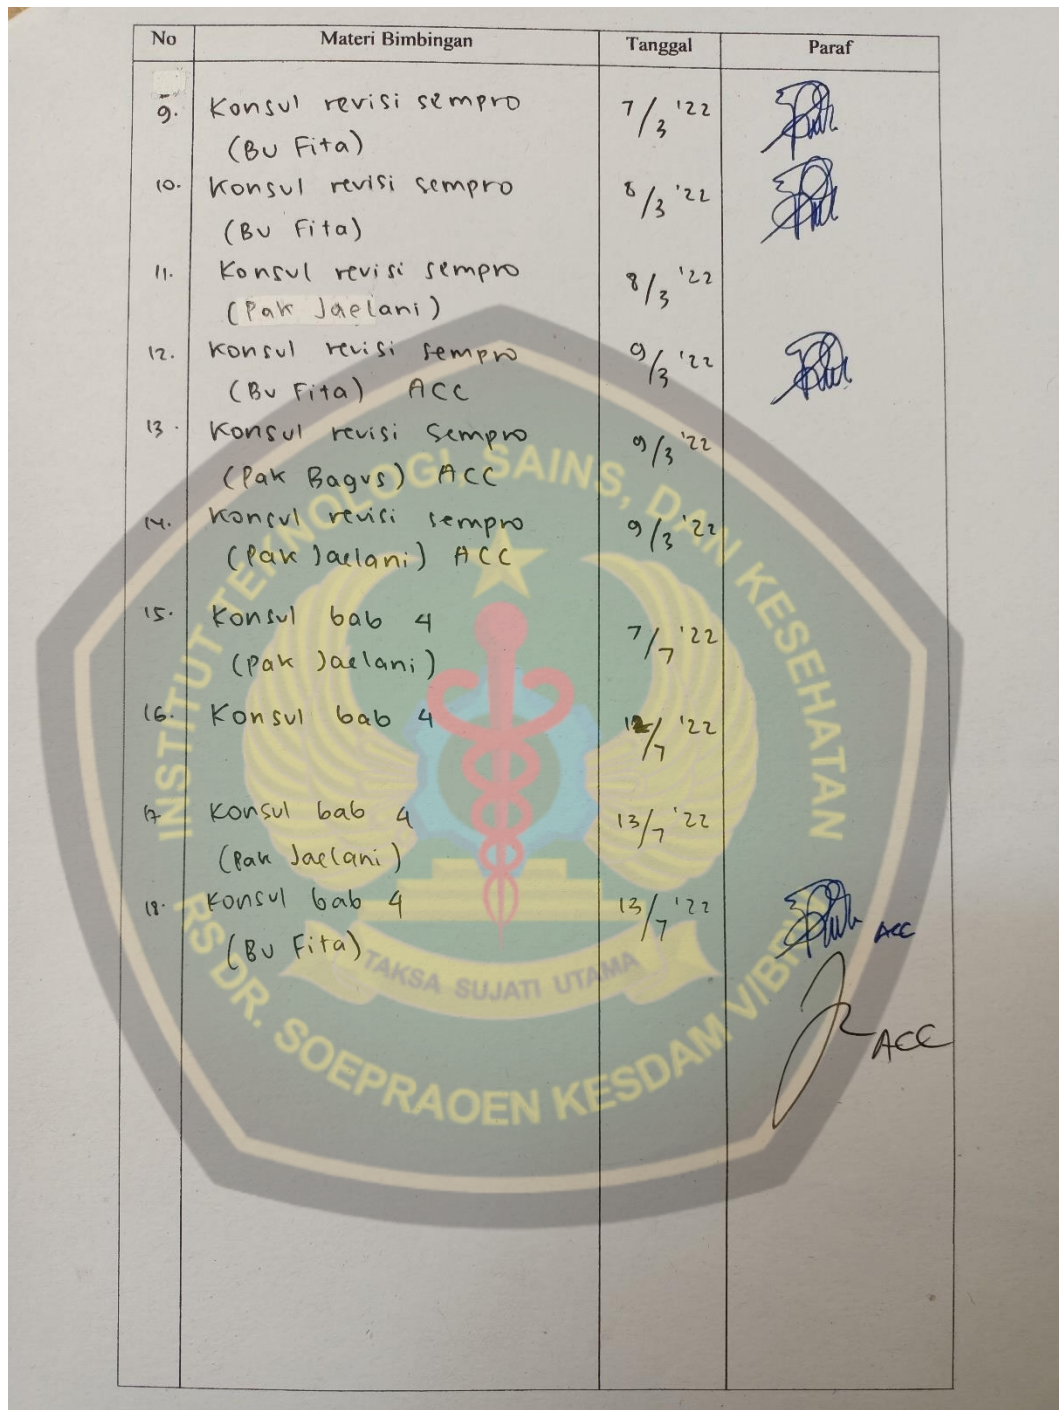 No Materi Bimbingan Tanggal Paraf
9. Konsul revisi sempro 7/3 '22
(Bu Fita)
10. Konsul revisi sempro 8/3 '22
(Bu Fita)
11. Konsul revisi sempro 8/3 '22
(Pak Jaelani)
12. Konsul revisi sempro 9/3 '22
(Bu Fita) ACC
13. Konsul revisi Sempro 9/3 '22
(Pak Bagus) ACC
14. Konsul revisi sempro 9/3 '22
(Pak Jaelani) ACC
15. Konsul bab 4 7/7 '22
(Pak Jaelani)
16. Konsul bab 4 12/7 '22
17 Konsul bab 4 13/7 '22
(Pak Jaelani)
18. Konsul bab 4 13/7 '22
(Bu Fita) ACC
ACC
INSTITUT TEKNOLOGI, SAINS, DAN KESEHATAN
TAKSA SUJATI UTAMA
RS DR. SOEPRAOEN KESDAM V/BRW